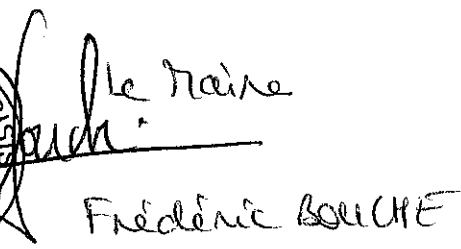 Le Maire
Frédéric BOUCHE